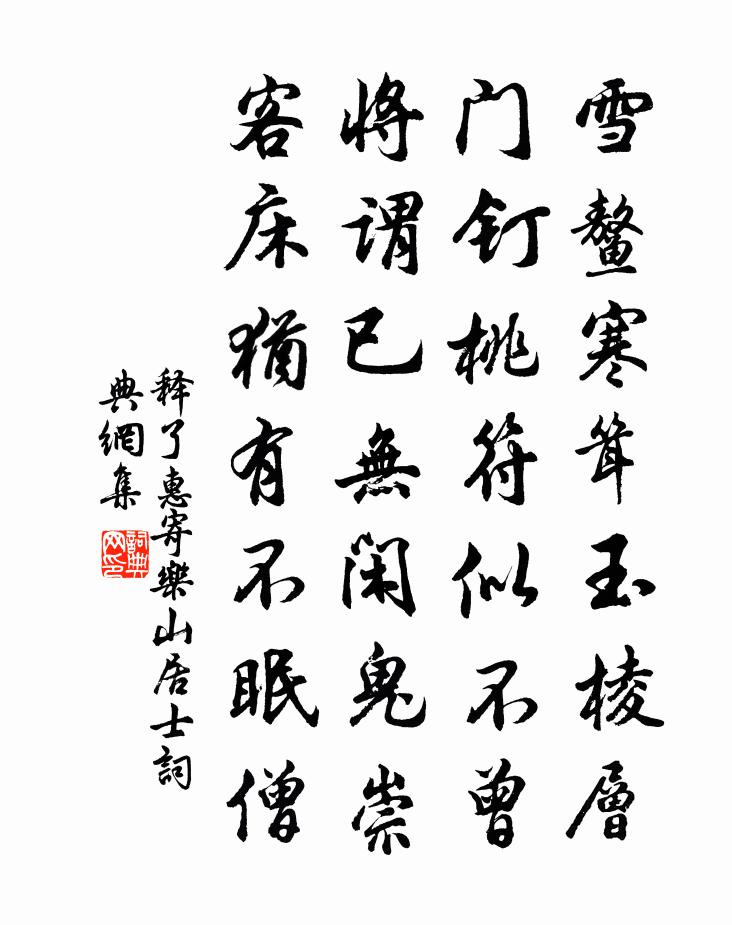 雪鳌寒耸玉棱層
门钉桃符似不曾
将谓已無闲鬼祟
客床猶有不眠僧
释了惠寄樂山居士詞
典網集
詞典网印